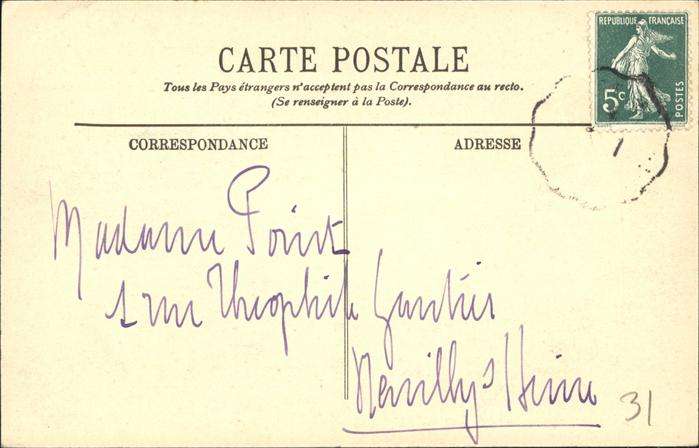 CARTE POSTALE
Tous les Pays étrangers n'acceptent pas la Correspondance au recto.
(Se renseigner à la Poste).
REPUBLIQUE FRANÇAISE
5c
POSTES
CORRESPONDANCE
ADRESSE
Madame Point
1 rue Théophile Gautier
Neuilly s/ Seine
31